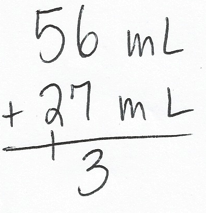 56 mL
+ 27 mL
1
3